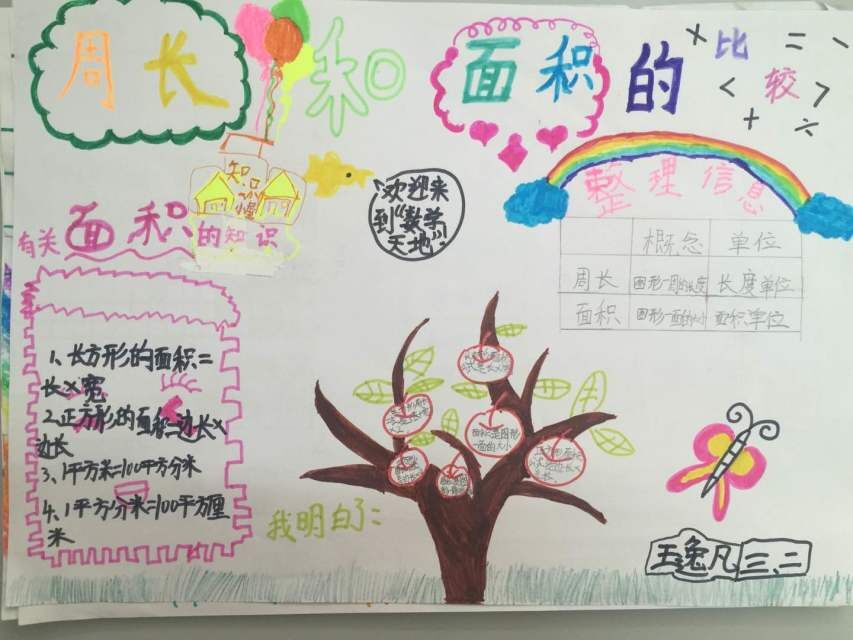 周长和面积的比较
× = - < > + ÷
知识城堡
欢迎来
到“数学
天地”
有关面积的知识
整理信息
概念 单位
周长 图形一周的长度 长度单位
面积 图形一面的大小 面积单位
1、长方形的面积=
长×宽
2.正方形的面积=边长×
边长
3、1平方米=100平方分米
4、1平方分米=100平方厘
米
面积是图形
一面的大小
我明白了:
三、二